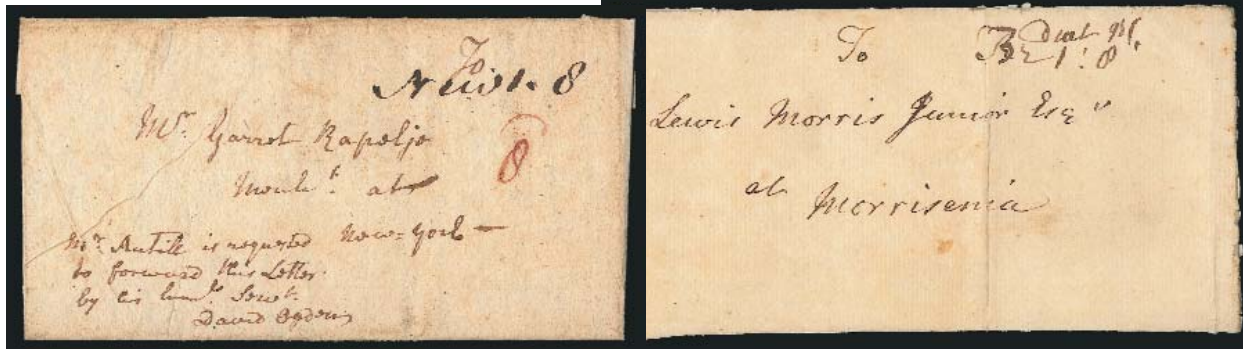 To
N Ew 1. 8
Mr. Garrot Rapelje
8
at
New=York
Mr. Antill is requested
to forward this Letter
by his humle. Servt.
David Ogden
To
1:8
Lewis Morris Junior Esqr
at Morrisenia